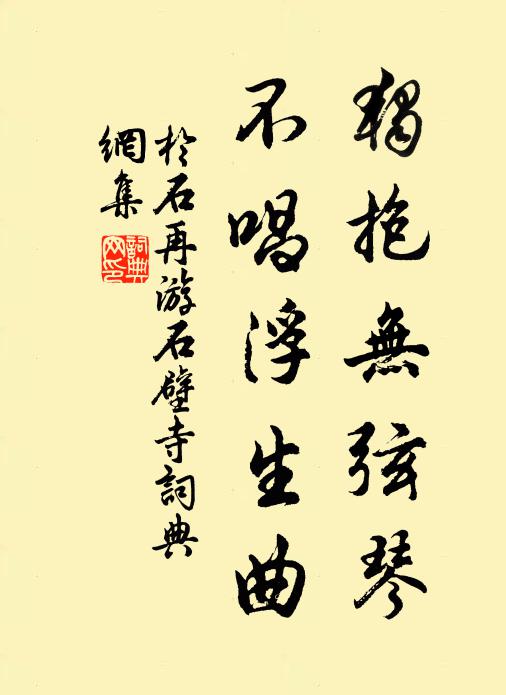 獨抱無弦琴
不唱浮生曲
於石再游石壁寺詞典
網集
詞典
网印